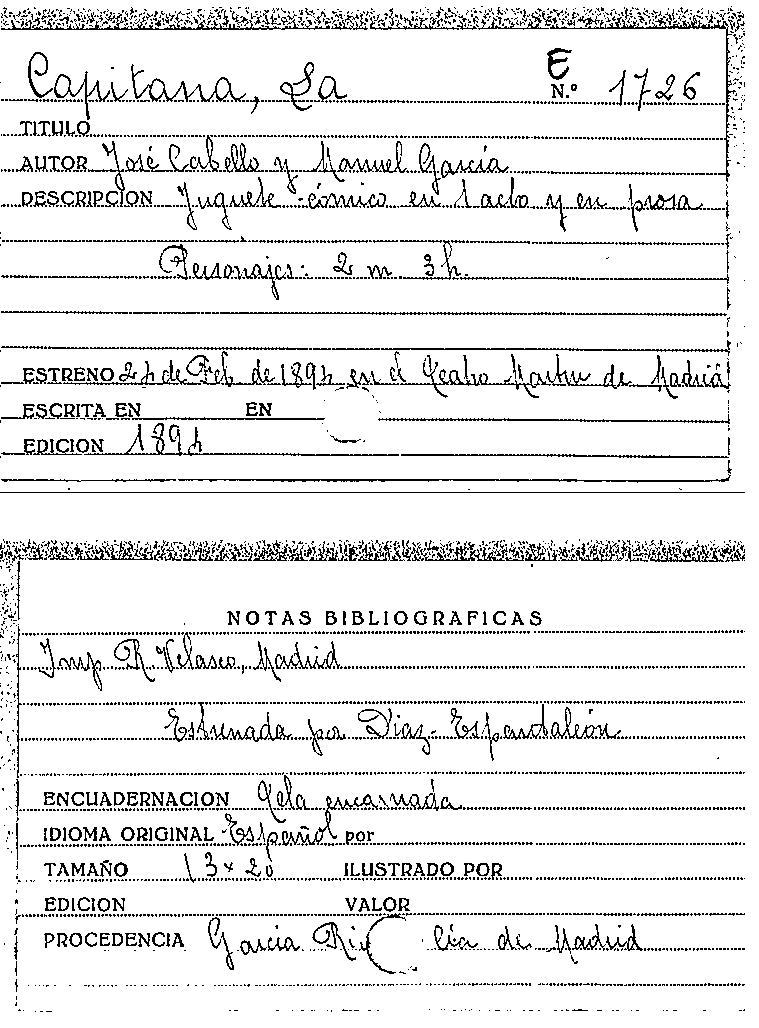 Capitana, La E
N.º 1726
TITULO
AUTOR José Cabello y Manuel García
DESCRIPCION Juguete-cómico en 1 acto y en prosa
Personajes: 2 m. 3 h.
ESTRENO 24 de Feb de 1894 en el Teatro Martin de Madrid
ESCRITA EN EN
EDICION 1894
NOTAS BIBLIOGRAFICAS
Imp. R. Velasco, Madrid
Estrenada por Diaz-Espantaleón
ENCUADERNACION Tela encarnada
IDIOMA ORIGINAL Español por
TAMAÑO 13 x 20 ILUSTRADO POR
EDICION VALOR
PROCEDENCIA García de Madrid